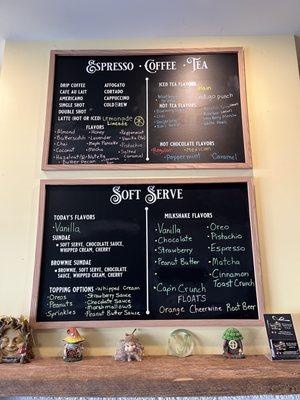 Espresso · Coffee · Tea
DRIP COFFEE
CAFE AU LAIT
AMERICANO
SINGLE SHOT
DOUBLE SHOT
LATTE (HOT OR ICED)
AFFOGATO
CORTADO
CAPPUCCINO
COLD BREW
LEMONADE
Limeade
FLAVORS
·Almond
·Butterscotch
·Chai
·Coconut
·Hazelnut
·Butter Pecan
·Honey
·Lavender
·Maple Pancake
·Mocha
·Nutella
·Peppermint
·Vanilla
·Pistachio
·Salted Caramel
ICED TEA FLAVORS
Plain
indigo punch
HOT TEA FLAVORS
HOT CHOCOLATE FLAVORS
·Regular
·Mexican
·Peppermint
Caramel
Soft Serve
TODAY'S FLAVORS
·Vanilla
SUNDAE
SOFT SERVE, CHOCOLATE SAUCE,
WHIPPED CREAM, CHERRY
BROWNIE SUNDAE
BROWNIE, SOFT SERVE, CHOCOLATE
SAUCE, WHIPPED CREAM, CHERRY
TOPPING OPTIONS
·Oreos
·Peanuts
·Sprinkles
·Whipped Cream
·Strawberry Sauce
·Chocolate Sauce
·Marshmallows
·Peanut Butter Sauce
MILKSHAKE FLAVORS
·Vanilla
·Chocolate
·Strawberry
·Peanut Butter
·Cap'n Crunch
·Oreo
·Pistachio
·Espresso
·Matcha
·Cinnamon
Toast Crunch
FLOATS
Orange Cheerwine Root Beer